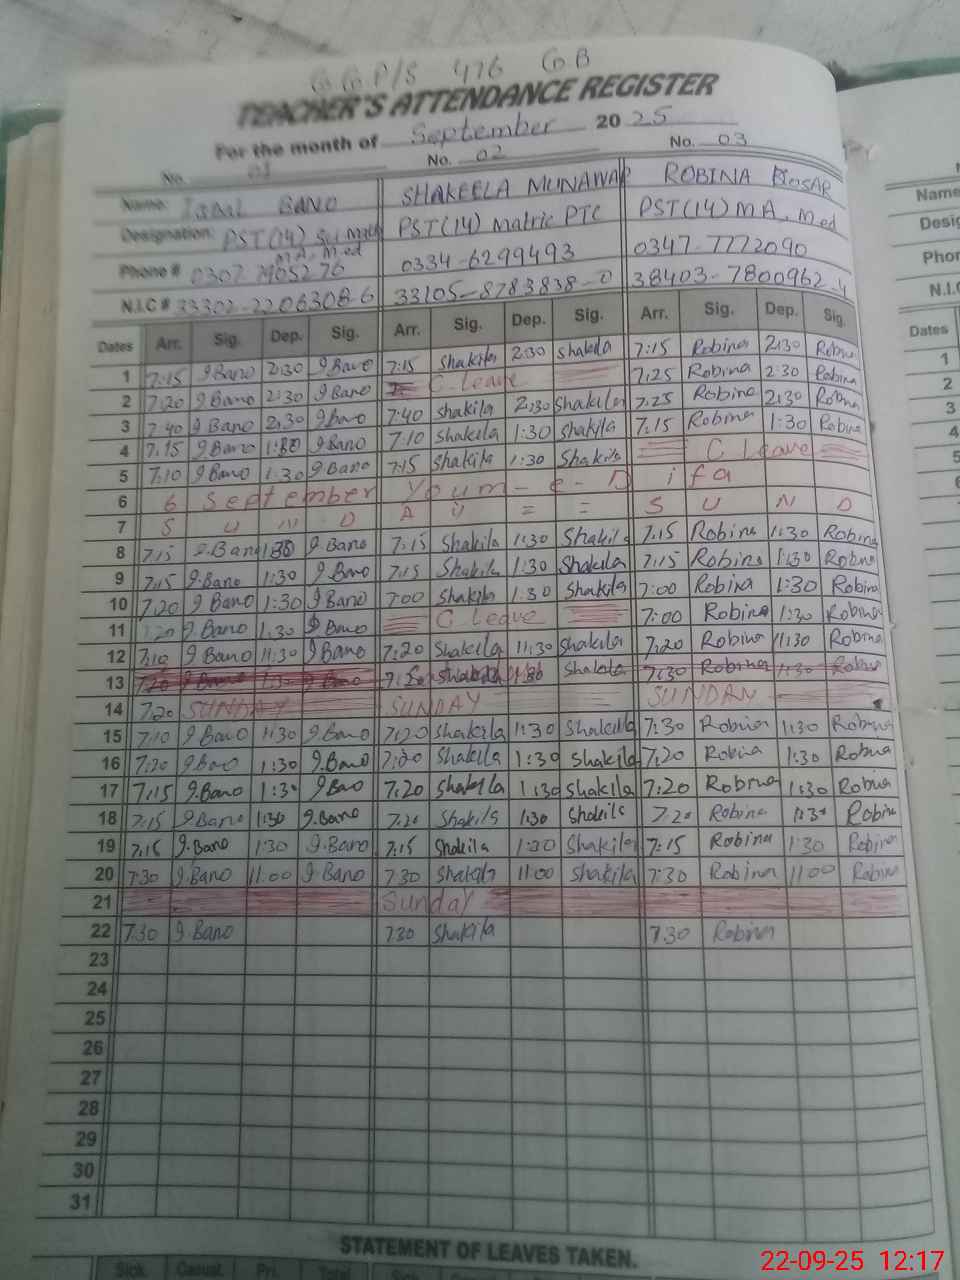 G G P/S 476 GB
TEACHER'S ATTENDANCE REGISTER
For the month of September 20 25
No. 01 No. 02 No. 03
Name: BANO SHAKEELA MUNAWAR ROBINA KOSAR
Designation: PST(14) PST(14) Matric PTC PST(14) M A. M.ed
M A, M.ed
Phone # 0307-7905276 0334-6299493 0347-7772090
N.I.C # 33302-2206308-6 33105-8783838-0 38403-7800962-4
Dates Arr. Sig. Dep. Sig. Arr. Sig. Dep. Sig. Arr. Sig. Dep. Sig.
1 7:15 I Bano 2:30 I Bano 7:15 Shakila 2:30 Shakila 7:15 Robina 2:30 Robina
2 7:20 I Bano 2:30 I Bano C. Leave 7:25 Robina 2:30 Robina
3 7:40 I Bano 2:30 I Bano 7:40 Shakila 2:30 Shakila 7:25 Robina 2:30 Robina
4 7:15 I Bano I Bano 7:10 Shakila 1:30 Shakila 7:15 Robina 1:30 Robina
5 7:10 I Bano 1:30 I Bano 7:15 Shakila 1:30 Shakila C Leave
6 6 September Youm - e - D i f a
7 S U N D A Y = = S U N D
8 7:15 I.Bano 1:30 I.Bano 7:15 Shakila 1:30 Shakila 7:15 Robina 1:30 Robina
9 7:15 I.Bano 1:30 I.Bano 7:15 Shakila 1:30 Shakila 7:15 Robina 1:30 Robina
10 7:20 I Bano 1:30 I Bano 7:00 Shakila 1:30 Shakila 7:00 Robina 1:30 Robina
11 7:20 I.Bano 1:30 I Bano C Leave 7:00 Robina 1:30 Robina
12 7:10 I Bano 11:30 I Bano 7:20 Shakila 11:30 Shakila 7:20 Robina 11:30 Robina
13 7:20 I Bano I Bano Shakila Shakila 7:30 Robina 1:30 Robina
14 7:20 SUNDAY SUNDAY SUNDAY
15 7:10 I Bano 1:30 I Bano 7:20 Shakila 1:30 Shakila 7:30 Robina 1:30 Robina
16 7:20 I Bano 1:30 I.Bano 7:20 Shakila 1:30 Shakila 7:20 Robina 1:30 Robina
17 7:15 I.Bano 1:30 I Bano 7:20 Shakila 1:30 Shakila 7:20 Robina 1:30 Robina
18 7:15 I Bano 1:30 I.Bano 7:20 Shakila 1:30 Shakila 7:20 Robina 1:30 Robina
19 7:15 I.Bano 1:30 I.Bano 7:15 Shakila 1:30 Shakila 7:15 Robina 1:30 Robina
20 7:30 I.Bano 11:00 I.Bano 7:30 Shakila 11:00 Shakila 7:30 Robina 11:00 Robina
21 Sunday
22 7:30 I.Bano 7:30 Shakila 7:30 Robina
23
24
25
26
27
28
29
30
31
STATEMENT OF LEAVES TAKEN.
Sick. Casual. Pri. Total
Name
Dates
1
2
3
22-09-25 12:17